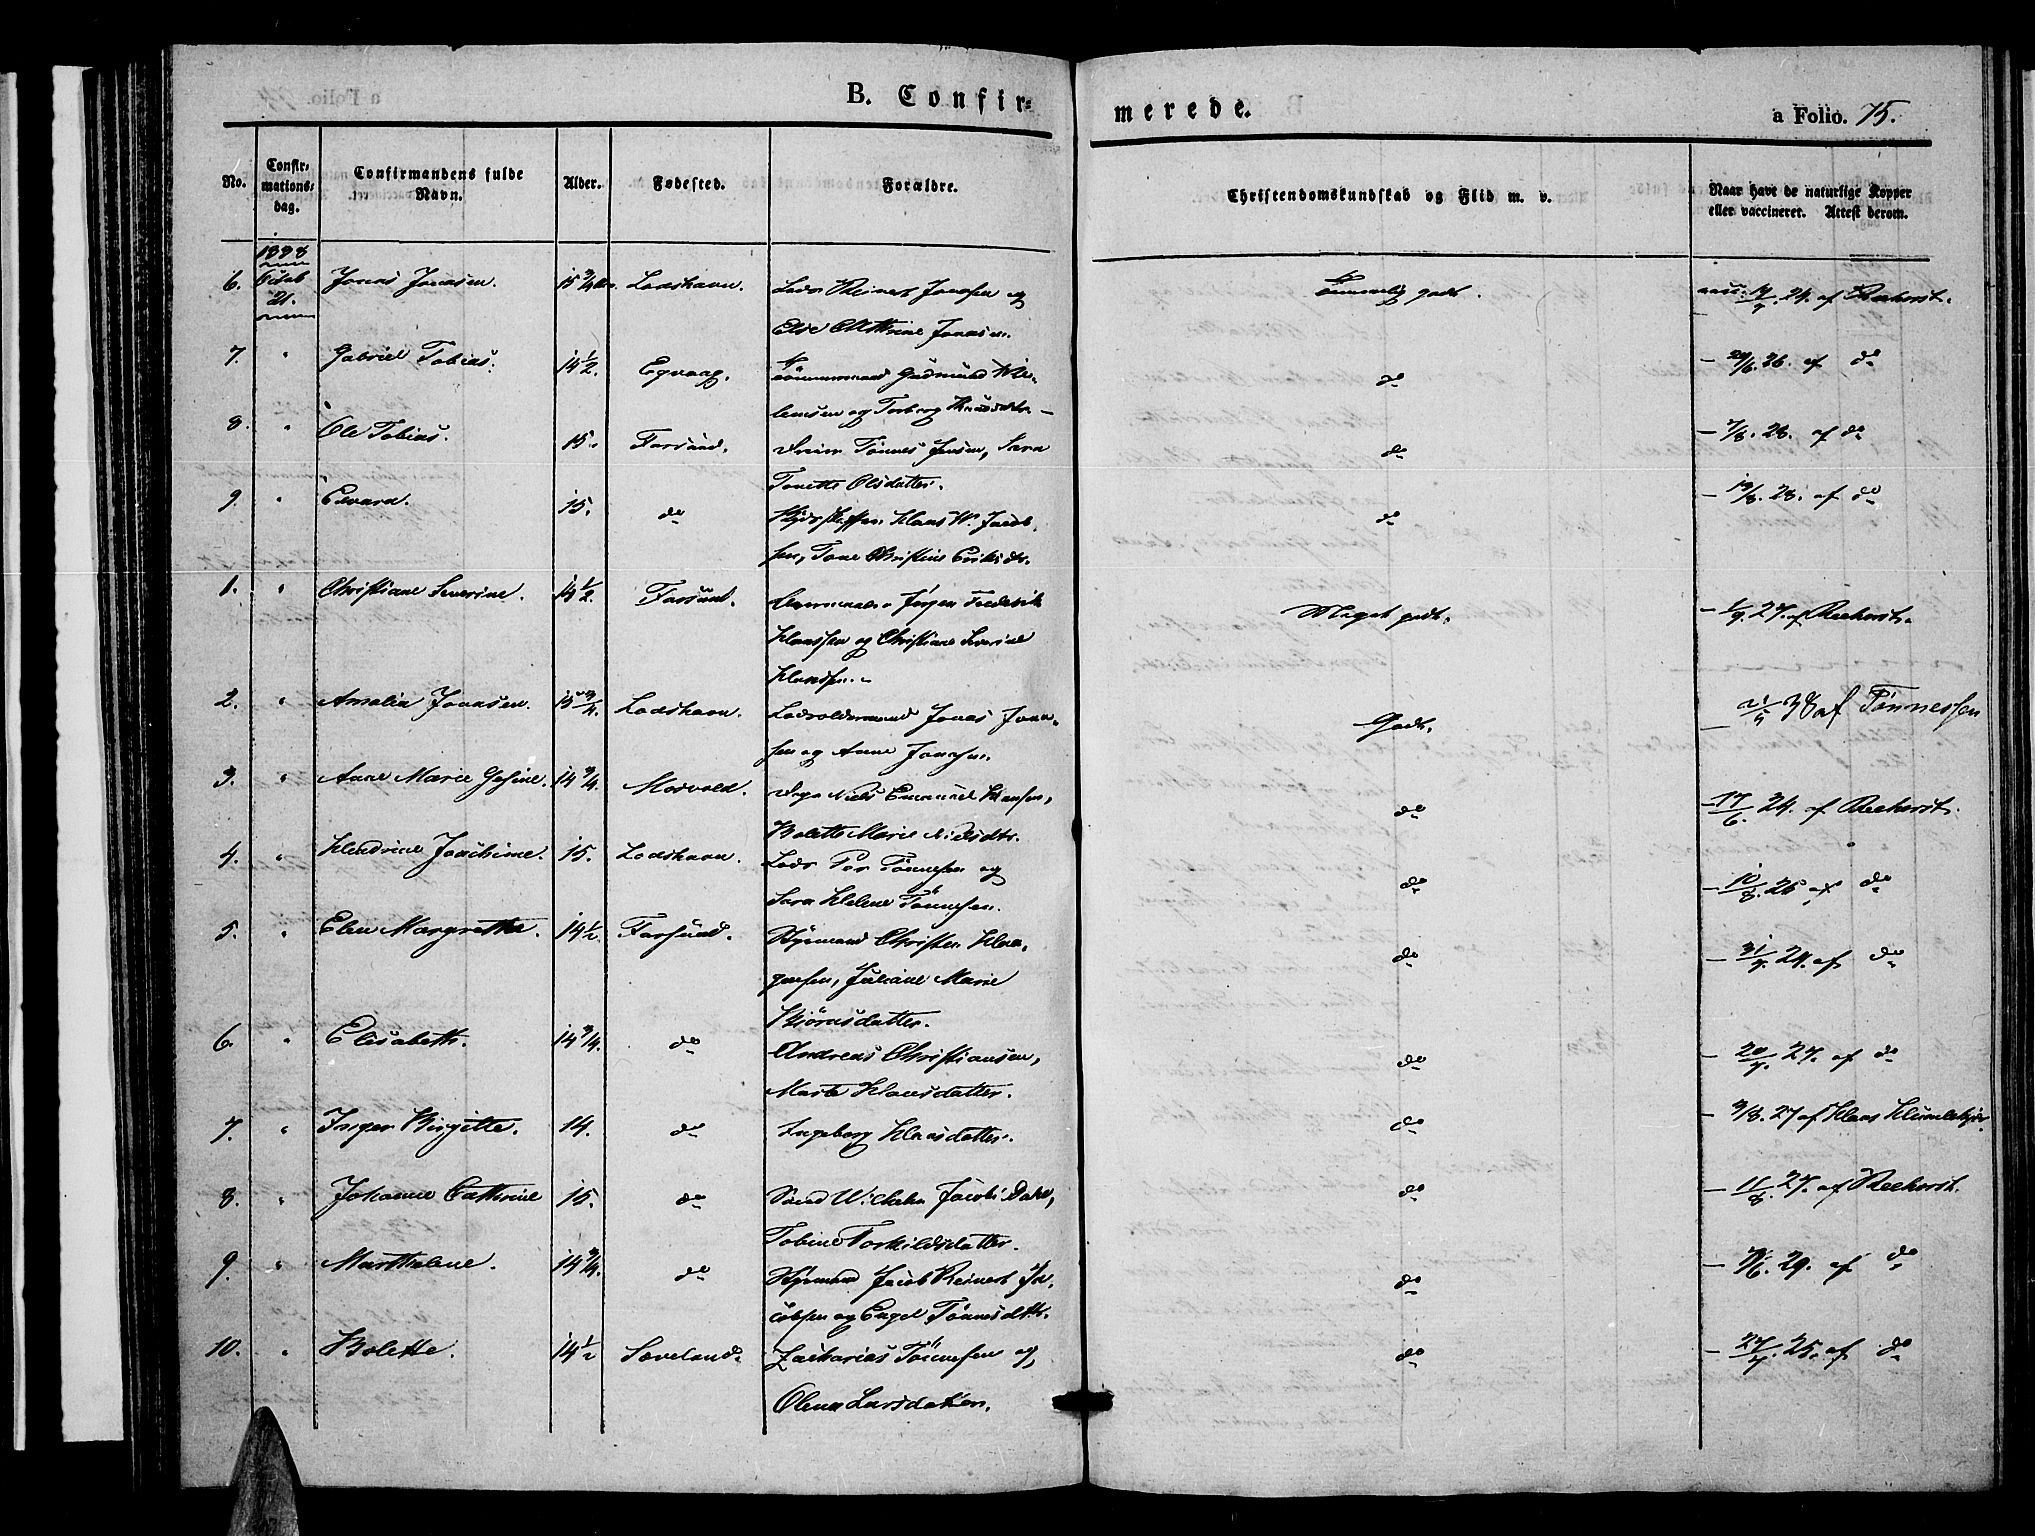 B. Confir=
merede.
a Folio. 75.
No.
Confir=
mations=
dag.
Confirmandens fulde
Navn.
Alder.
Fødested.
Forældre.
Christendomskundskab og Flid m. v.
Naar have de naturlige Kopper
eller vaccineret. Attest derom.
1838
6. Octob 21. Jonas Jonasen. 15 3/4 Lodshavn. Lods Reinert Jonasen og
Else Cathrine Jonasen.
godt. 24. af Reehorst.
7. " Gabriel Tobias. 14 1/2. Egvaag. Tømmermand Gudmund
og Torborg
do 26. af do
8. " Ole Tobias. 15. Farsund. Tønnes Jensen, Sara
Tonette Olsdatter.
do 7/8. 28. af do
9. " Edvard. 15. do Klaus W. Jacob=
sen, Tone Christine
do 19/8. 28. af do
1. " Christiane Severine. 14 1/2. Farsund. Jørgen Frederik
Klaussen og Christiane Severine
Klaussen.
Meget godt. 27. af Reehorst.
2. " Amalia Jonasen. 15 3/4. Lodshavn. Lodsoldermand Jonas Jona=
sen og Anne Jonasen.
Godt. 38 af Tønnessen
3. " Anne Marie Gesine. 14 3/4. Mosvold. Niels Emanuel Hansen,
Bolette Marie Nielsdtr.
do 17/6. 24. af Reehorst.
4. " Hendrine Joachime. 15. Lodshavn. Lods Per Tønnesen og
Sara Helene Tønnesen.
do 10/8. 26 af do
5. " Elen Margrethe. 14 1/2. Farsund. Styrmand Christen
Juliane Marie
Bjørnsdatter.
do 24. af do
6. " Elisabeth. 14 3/4. do Andreas Christiansen,
Marte Klausdatter.
do 27. af do
7. " Inger Birgitte. 14. do Ingeborg Klausdatter.
do 27 af Klaus
8. " Johanne Cathrine 15. do Wilhelm Jacobi Dahl,
Tobine Torkildsdatter.
do 11/8. 27. af Reehorst.
9. " Marthalene. 14 3/4. do Styrmand Jacob Reinert Ja=
cobsen og Engel Tønnesdtr.
do 29. af do
10. " Bolette. 14 1/2 Loveland Zacharias Tønnesen og
Olena Larsdatter.
do 25. af do